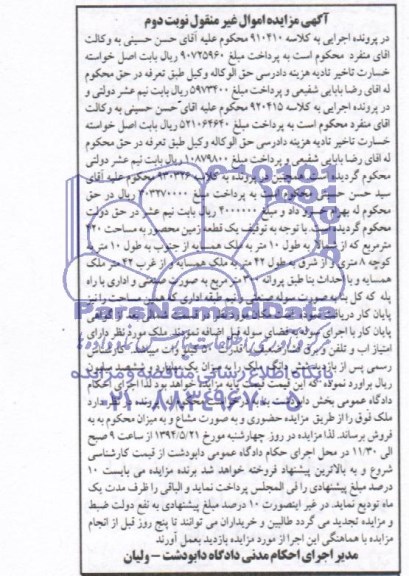 آگهی مزایده اموال غیر منقول نوبت دوم
در پرونده اجرایی به کلاسه ۹۱۰۴۱۰ محکوم علیه آقای حسن حسینی به وکالت
اقای منفرد محکوم است به پرداخت مبلغ ۹۰۷۲۵۹۶۰ ریال بابت اصل خواسته
خسارت تاخیر تادیه هزینه دادرسی حق الوکاله وکیل طبق تعرفه در حق محکوم
له اقای رضا بابایی شفیعی و پرداخت مبلغ ۵۹۷۳۴۰۰ ریال بابت نیم عشر دولتی و
در پرونده اجرایی به کلاسه ۹۲۰۴۱۵ محکوم علیه اقای حسن حسینی به وکالت
اقای منفرد محکوم است به پرداخت مبلغ ۵۲۱۰۶۴۶۴۰ ریال بابت اصل خواسته
خسارت تاخیر تادیه هزینه دادرسی حق الوکاله وکیل طبق تعرفه در حق محکوم
له اقای رضا بابایی شفیعی و پرداخت مبلغ ۱۰۸۷۹۸۰۰ ریال بابت نیم عشر دولتی
محکوم گردیده به کلاسه ۹۳۰۳۲۶ محکوم علیه آقای
سید حسن محکوم است به پرداخت مبلغ ریال در حق
محکوم له و مبلغ ریال بابت نیم عشر در حق دولت
محکوم گردیده با توجه به توقیف یک قطعه زمین محصور به مساحت ۲۲۰
مترمربع که از شمالا به طول ۱۰ متر به ملک همسایه از جنوب به طول ۱۰ متر به
کوچه ۸ متری و از شرق به طول ۲۲ متر به ملک همسایه از غرب ۲۲ متر ملک
همسایه و با احداث بنا طبق پروانه متر مربع به صورت صنعتی و اداری با راه
پله که کل بنا به صورت سوله صنعتی و نیم طبقه اداری که همین مساحت را نیز
پایان کار
پایان کار با اجرای سوله به فضای سوله قبل اضافه نمودند ملک مورد نظر دارای
امتیاز اب و تلفن و برق کیلو وات میباشد کارشناس
رسمی پس از بازدید ملک را به میزان یک میلیارد و
ریال براورد نموده که این قیمت پایه مزایده خواهد بود لذا اجرای احکام
دادگاه عمومی بخش در نظر دارد
ملک فوق را از طریق مزایده حضوری و به صورت مشاع و به میزان محکوم به به
فروش برساند. لذا مزایده در روز چهارشنبه مورخ ۱۳۹۴/۵/۲۱ از ساعت ۹ صبح
الی ۱۱/۳۰ در محل اجرای حکام دادگاه عمومی دابودشت از قیمت کارشناسی
شروع و به بالاترین پیشنهاد فروخته خواهد شد برنده مزایده می بایست ۱۰
درصد مبلغ پیشنهادی را فی المجلس پرداخت نماید و الباقی را ظرف مدت یک
ماه تودیع نماید. در غیر اینصورت ۱۰ درصد مبلغ پیشنهادی به نفع دولت ضبط
و مزایده تجدید می گردد طالبین و خریداران می توانند تا پنج روز قبل از انجام
مزایده با هماهنگی این اجرا از مورد مزایده بازدید بعمل آورند
مدیر اجرای احکام مدنی دادگاه دابودشت – ولیان
ParsNamadData
۰۲۱-۸۸۳۴۹۶۷۰-۵